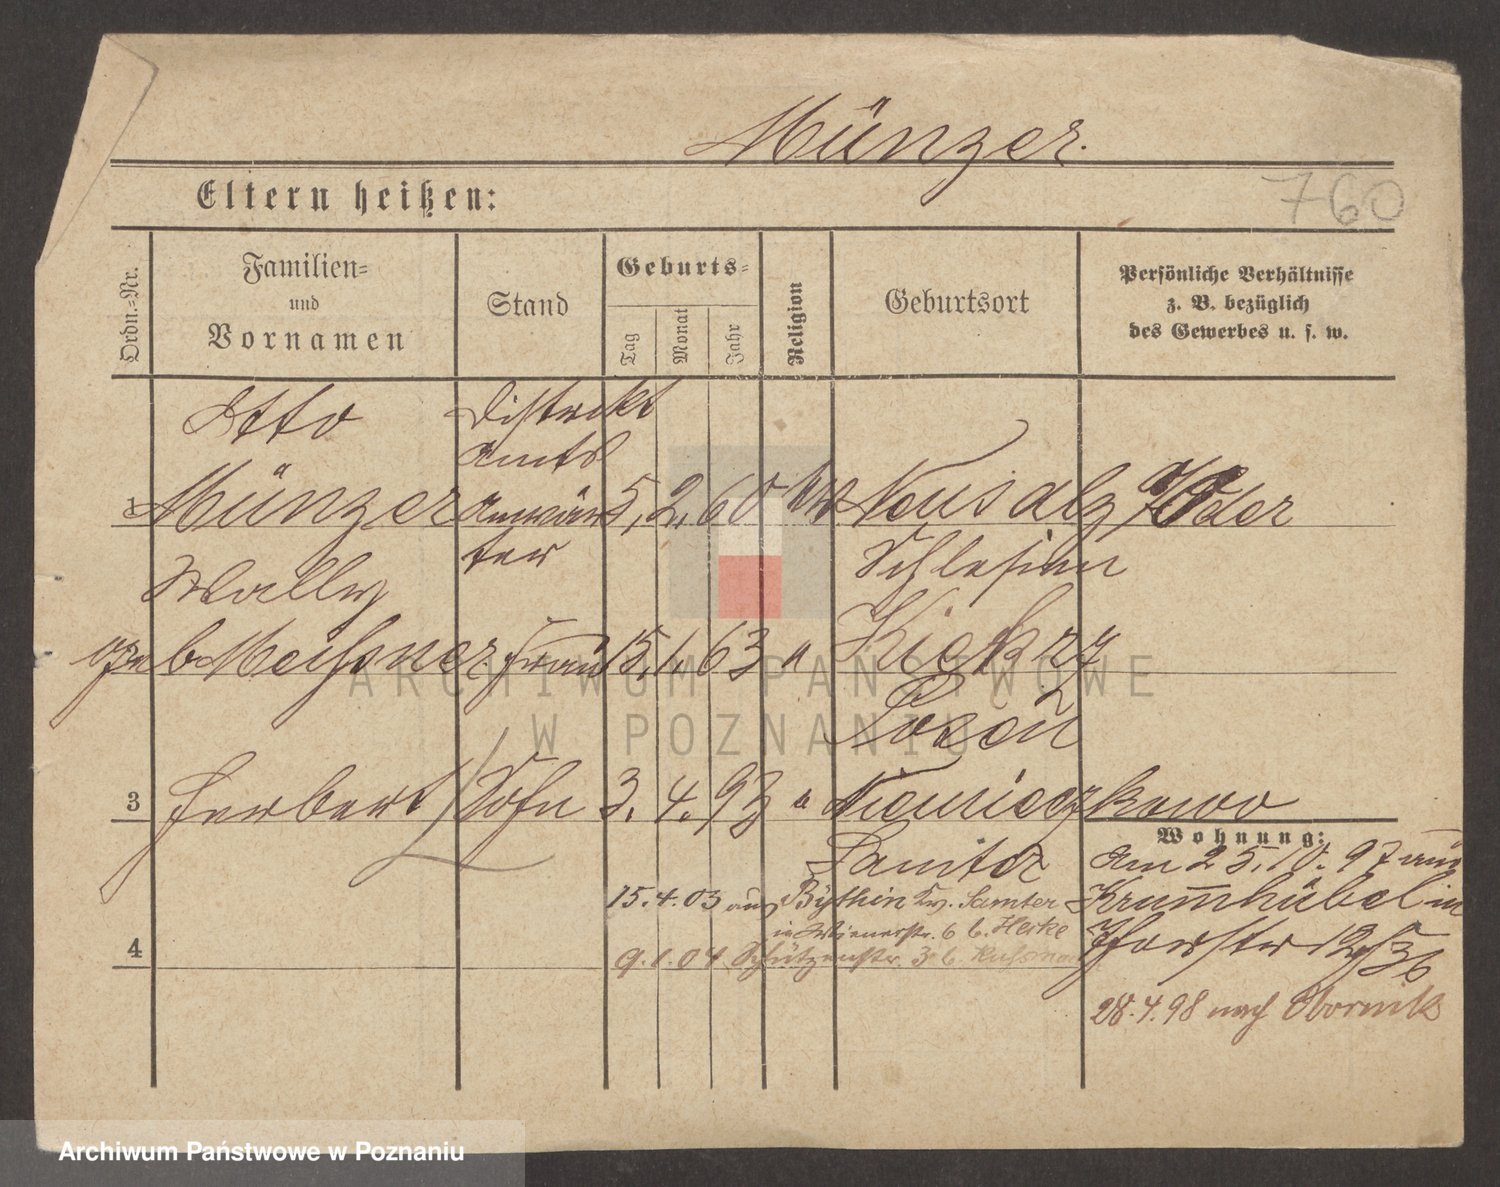 Münzer.
760
Eltern heißen:
Ordn.-Nr.
Familien-
und
Vornamen
Stand
Geburts-
Tag
Monat
Jahr
Religion
Geburtsort
Persönliche Verhältnisse
z. B. bezüglich
des Gewerbes u. s. w.
Otto
Distrikt
Amts
1 Münzer Anwär 5. 2. 60 Neusalz a/Oder
ter
Schlesien
Wally
geb. Meissner Frau 15. 1. 63 " Kiekrz
Posen
3 Herbert Sohn 3. 4. 93 "
Samter
Wohnung:
am 25. 10. 97 aus
Krummhübel in
28. 4. 98 nach Obornik
15. 4. 03 aus Bythin Kr. Samter
in Wienerstr. 6 b. Heike
4
9. 1. 04 Schützenstr. 3 b
ARCHIWUM PAŃSTWOWE
W POZNANIU
Archiwum Państwowe w Poznaniu